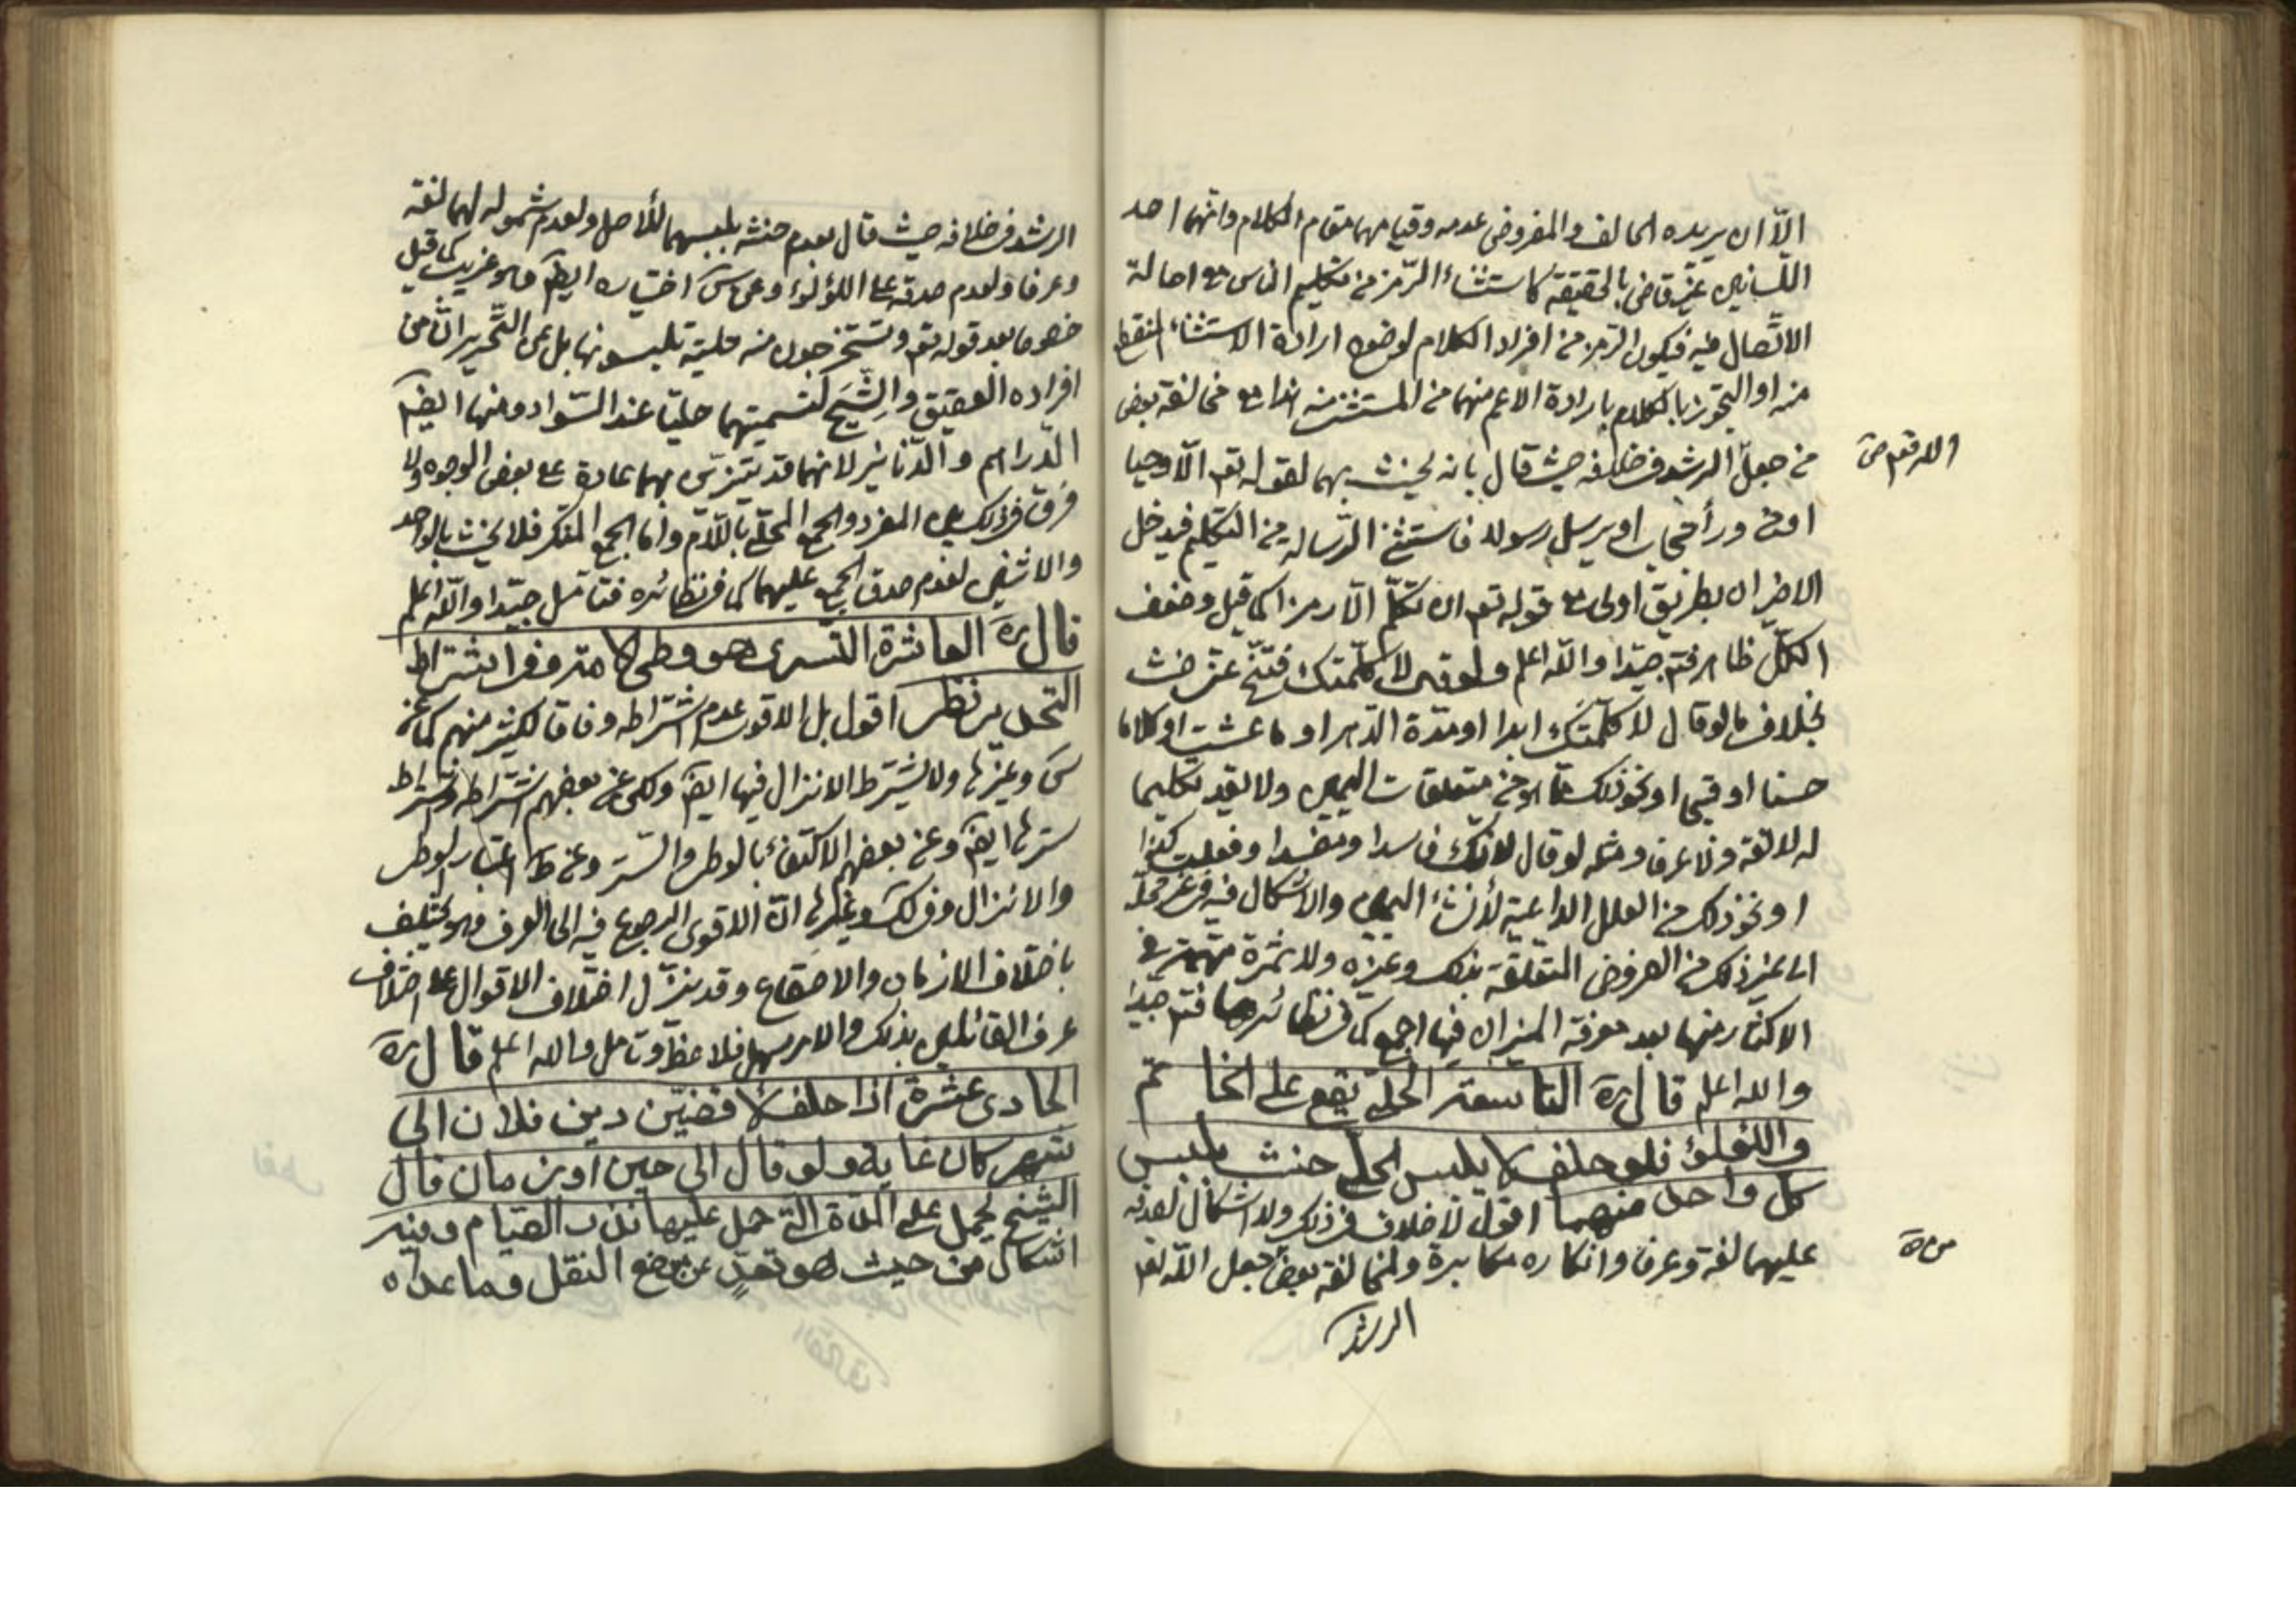 الّا ان يريده الحالف والمفروض عدمه وقيامهما مقام الكلام وانهما احد
اللسانين غير قاض بالحقيقة كاستثناء الرّمز من تكليم الناس مع اصالة
الاتّصال فيه فيكون الرمز من افراد الكلام لوضوح ارادة الاستثناء المنقطع
منه او التجوز بالكلام بارادة الاعم منهما من المستثنى منه هذا مع مخالفة بعض
من جعل الرشد في خلافه حيث قال بانه يحنث بهما لقوله تعم الّا وحيا
او من وراء حجاب او يرسل رسولا فاستثنى الرسالة من التكليم فيدخل
الاخيران بطريق اولى مع قوله تعم ان تكلّم الّا رمزا كما قيل وضعف
الكلّ ظاهر فتم جيّدا والله اعلم ولو قال لا كلّمتك فتنحّ عنّي حنث
بخلاف ما لو قال لا كلّمتك ابدا او مدّة الدهر او ما عشت او كلاما
حسنا او قبيحا او نحو ذلك ممّا هو من متعلقات اليمين ولا يعد تكليما
له لا لغة ولا عرفا ومثله لو قال لانّك فاسد او مفسد او فعلت كذا
او نحو ذلك من العلل الداعية لانشاء اليمين والاشكال فيه في غير محلّه
الى غير ذلك من الفروض المتعلّقة بذلك وغيره ولا ثمرة مهمّة في
الاكثار منها بعد معرفة الميزان فيها اجمع كما في نظائرها فتم جيدا
والله اعلم قال ره التاسعة الحلي يقع على الخاتم
واللؤلؤ فلو حلف لا يلبس الحلي حنث بلبس
كل واحد منهما اقول لا خلاف في ذلك ولا اشكال لصدقه
عليهما لغة وعرفا وانكاره مكابرة ولمخالفة بعض جعل الله تعم
الرشد
الرشد في خلافه حيث قال بعدم حنثه بلبسهما للأصل ولعدم شموله لهما لغة
وعرفا ولعدم صدقه على اللؤلؤ وعن س اختياره ايضا وهو غريب كما قيل
خصوصا بعد قوله تعم وتستخرجون منه حلية تلبسونها بل عن التّحرير ان من
افراده العقيق والسّبج لتسميتهما حليّا عند السّواد ومنها ايضا
الدّراهم والدّنانير لانهما قد يتزيّن بهما عادة على بعض الوجوه ولا
فرق في ذلك بين المفرد والجمع المحلّى باللّام واما الجمع المنكر فلا يحنث بالواحد
والاثنين لعدم صدق الجمع عليهما كما في نظائره فتامّل جيّدا والله اعلم
قال ره العاشرة التسري هو وطي الامة وفي اشتراط
التخدير نظر اقول بل الاقوى عدم اشتراطه وفاقا لكثير منهم كما عن
س وغيرها ولا يشترط الانزال فيها ايضا وحكي عن بعضهم اشتراطه واشتراط
سترها ايضا وعن بعضهم الاكتفاء بالوطي والستر وعن ط اعتبار الوطي
والانزال وفي لك وغيرها انّ الاقوى الرجوع فيه الى العرف وهو يختلف
باختلاف الازمان والاصقاع وقد ينزّل اختلاف الاقوال على اختلاف
عرف القائلين بذلك والامر سهل فلاحظ وتامل والله اعلم قال ره
الحادي عشرة اذا حلف لاقضيّن دين فلان الى
شهر كان غاية ولو قال الى حين او زمان قال
الشيخ يحمل على المدّة التي حمل عليها نذر الصيام وفيه
اشكال من حيث هو تعدٍ عن موضع النقل وما عداه